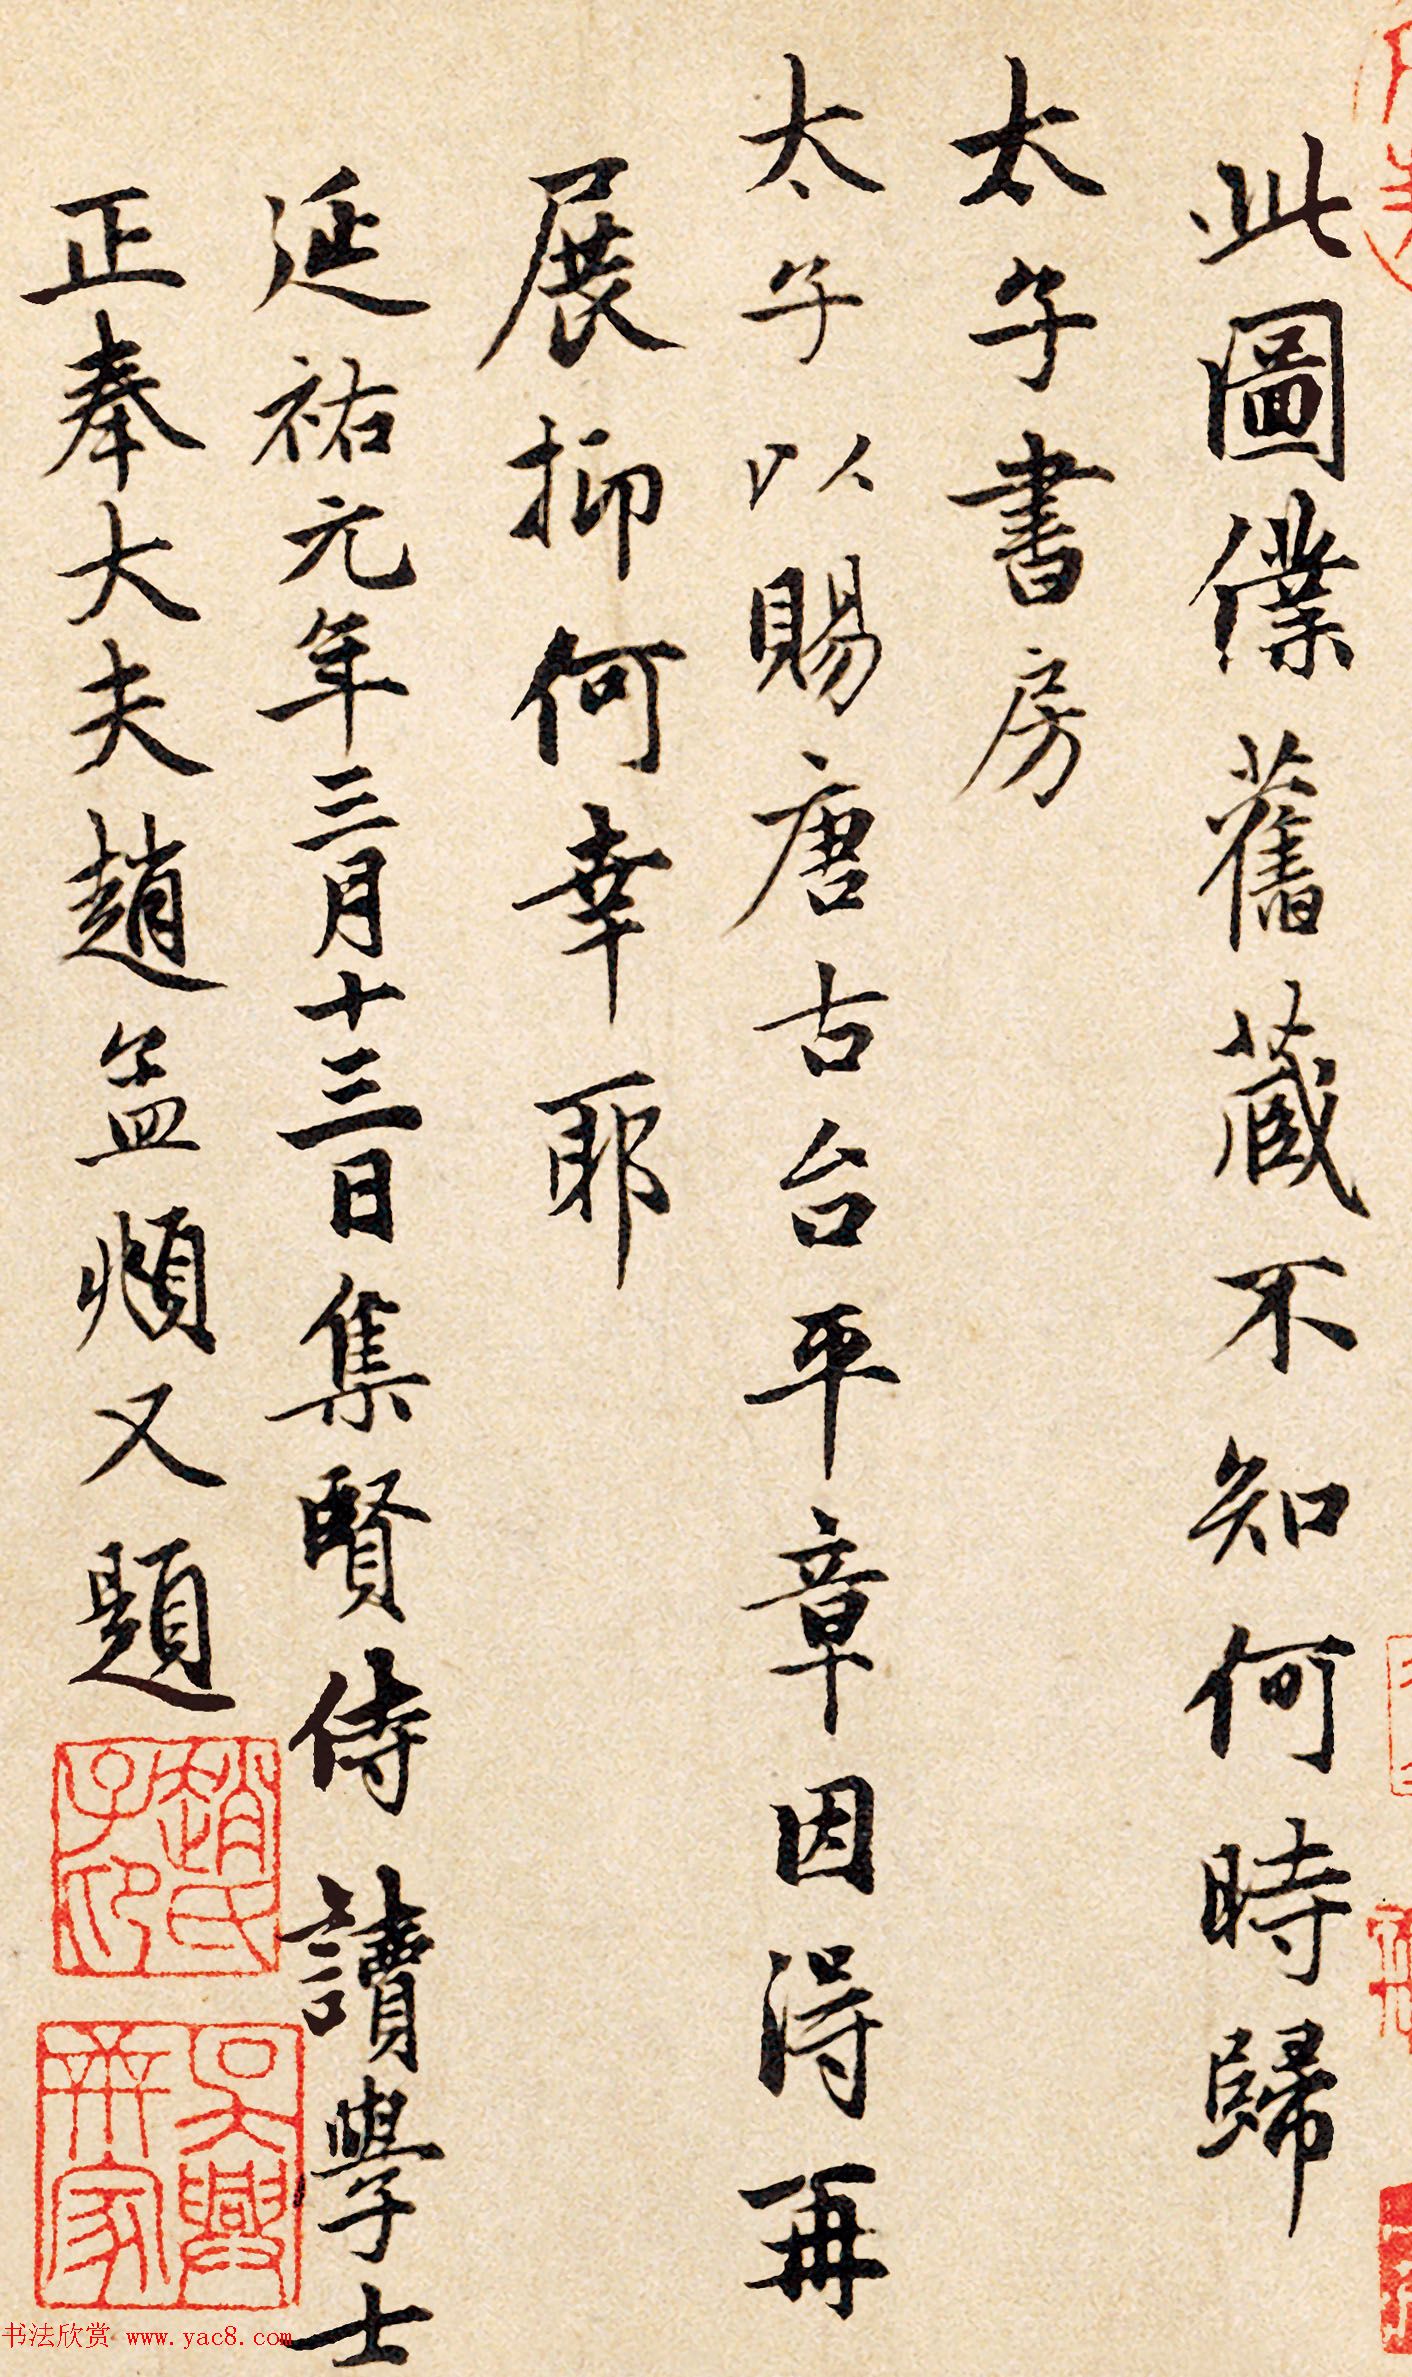 此圖僕舊蔵不知何時歸
太子書房
太子以賜唐古台平章因得再
展抑何幸耶
延祐元年三月十三日集賢侍讀學士
正奉大夫趙孟頫又題
趙氏子印
書法欣赏 www.yac8.com